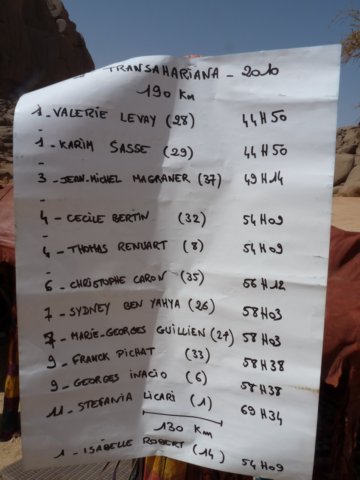 TRANSAHARIANA - 2010
190 Km
1 - VALERIE LEVAY (28) 44H50
1 - KARIM SASSE (29) 44H50
3 - JEAN-MICHEL MAGRANER (37) 49H14
4 - CECILE BERTIN (32) 54H09
4 - THOMAS RENVART (8) 54H09
6 - CHRISTOPHE CARON (35) 56H12
7 - SYDNEY BEN YAHYA (26) 58H03
7 - MARIE-GEORGES GUILLIEN (27) 58H03
9 - FRANCK PICHAT (33) 58H38
9 - GEORGES INACIO (6) 58H38
11 - STEFANIA LICARI (1) 69H34
130 Km
1 - ISABELLE ROBERT (14) 54H09